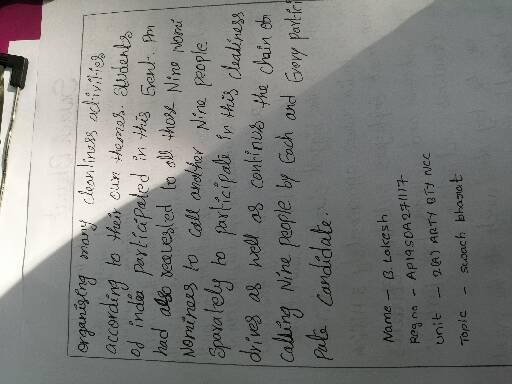 organising many cleanliness activities
according to their own themes. Students
of india participated in this Event. Pm
had also requested to all those Nine Nomi
Nominees to call another Nine people
Sparately to participate in this cleanliness
drives as well as continues the chain
Calling Nine people by Each and Every partici
pate candidate.
Name - B. Lokesh
Reg no - AP19SDA271117
Unit - 2(A) ARTY BTY NCC
Topic - Swach bharat